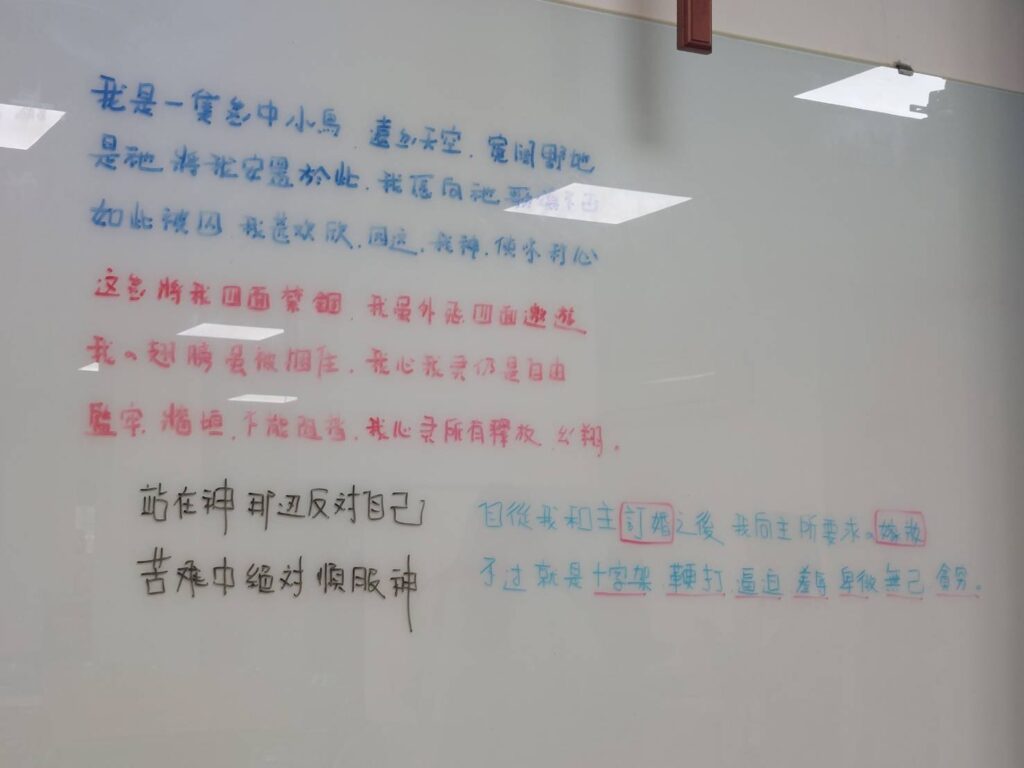 我是一隻笼中小鳥. 遠离天空. 寬闊野地
是祂將我安置於此. 我便向祂歌唱不已
如此被囚 我甚欢欣. 因这. 我神. 使祢 心
这笼將我四面禁錮. 我虽外 四面遨遊
我の翅膀虽被捆住. 我心我灵仍是自由
監牢. 牆垣. 不能阻挡. 我心灵所有釋放、 翔。
站在神那边反对自己
苦难中絕对順服神
自從我和主訂婚之後 我向主所要求の嫁妝
不过就是十字架 鞭打 逼迫 羞辱 卑微 無己 貧穷。